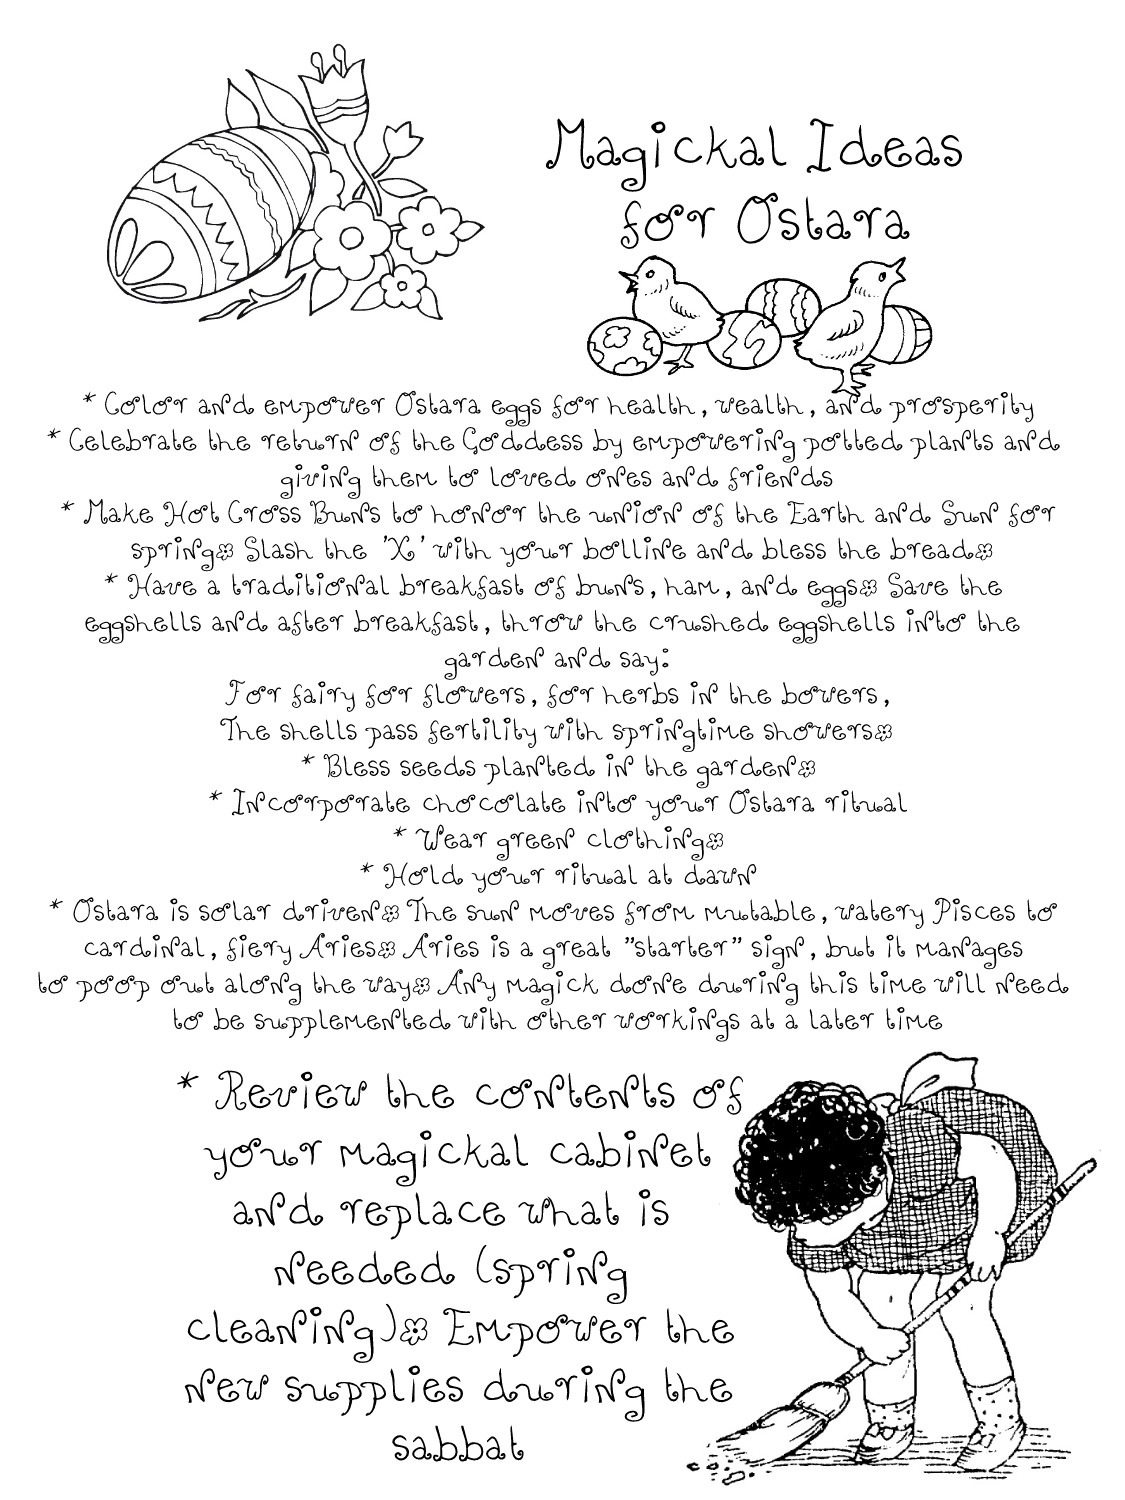 Magickal Ideas
for Ostara
* Color and empower Ostara eggs for health, wealth, and prosperity
* Celebrate the return of the Goddess by empowering potted plants and
giving them to loved ones and friends
* Make Hot Cross Buns to honor the union of the Earth and Sun for
spring. Slash the 'X' with your bolline and bless the bread.
* Have a traditional breakfast of buns, ham, and eggs. Save the
eggshells and after breakfast, throw the crushed eggshells into the
garden and say:
For fairy for flowers, for herbs in the bowers,
The shells pass fertility with springtime showers.
* Bless seeds planted in the garden.
* Incorporate chocolate into your Ostara ritual
* Wear green clothing.
* Hold your ritual at dawn
* Ostara is solar driven. The sun moves from mutable, watery Pisces to
cardinal, fiery Aries. Aries is a great "starter" sign, but it manages
to poop out along the way. Any magick done during this time will need
to be supplemented with other workings at a later time
* Review the contents of
your magickal cabinet
and replace what is
needed (spring
cleaning). Empower the
new supplies during the
sabbat